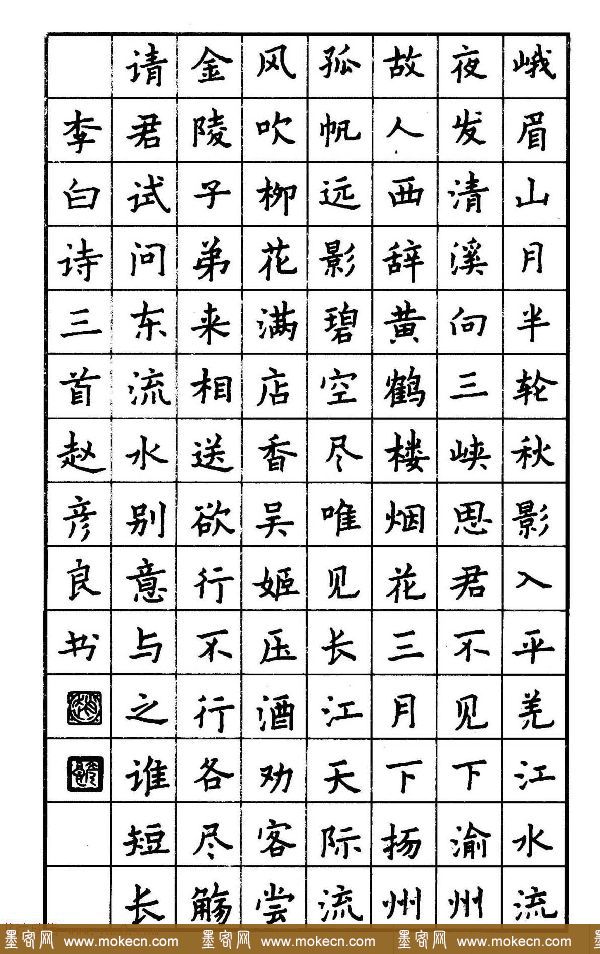 峨眉山月半轮秋影入平羌江水流
夜发清溪向三峡思君不见下渝州
故人西辞黄鹤楼烟花三月下扬州
孤帆远影碧空尽唯见长江天际流
风吹柳花满店香吴姬压酒劝客尝
金陵子弟来相送欲行不行各尽觞
请君试问东流水别意与之谁短长
李白诗三首赵彦良书
墨客网 www.mokecn.com 墨客网 www.mokecn.com 墨客网 www.mokecn.com